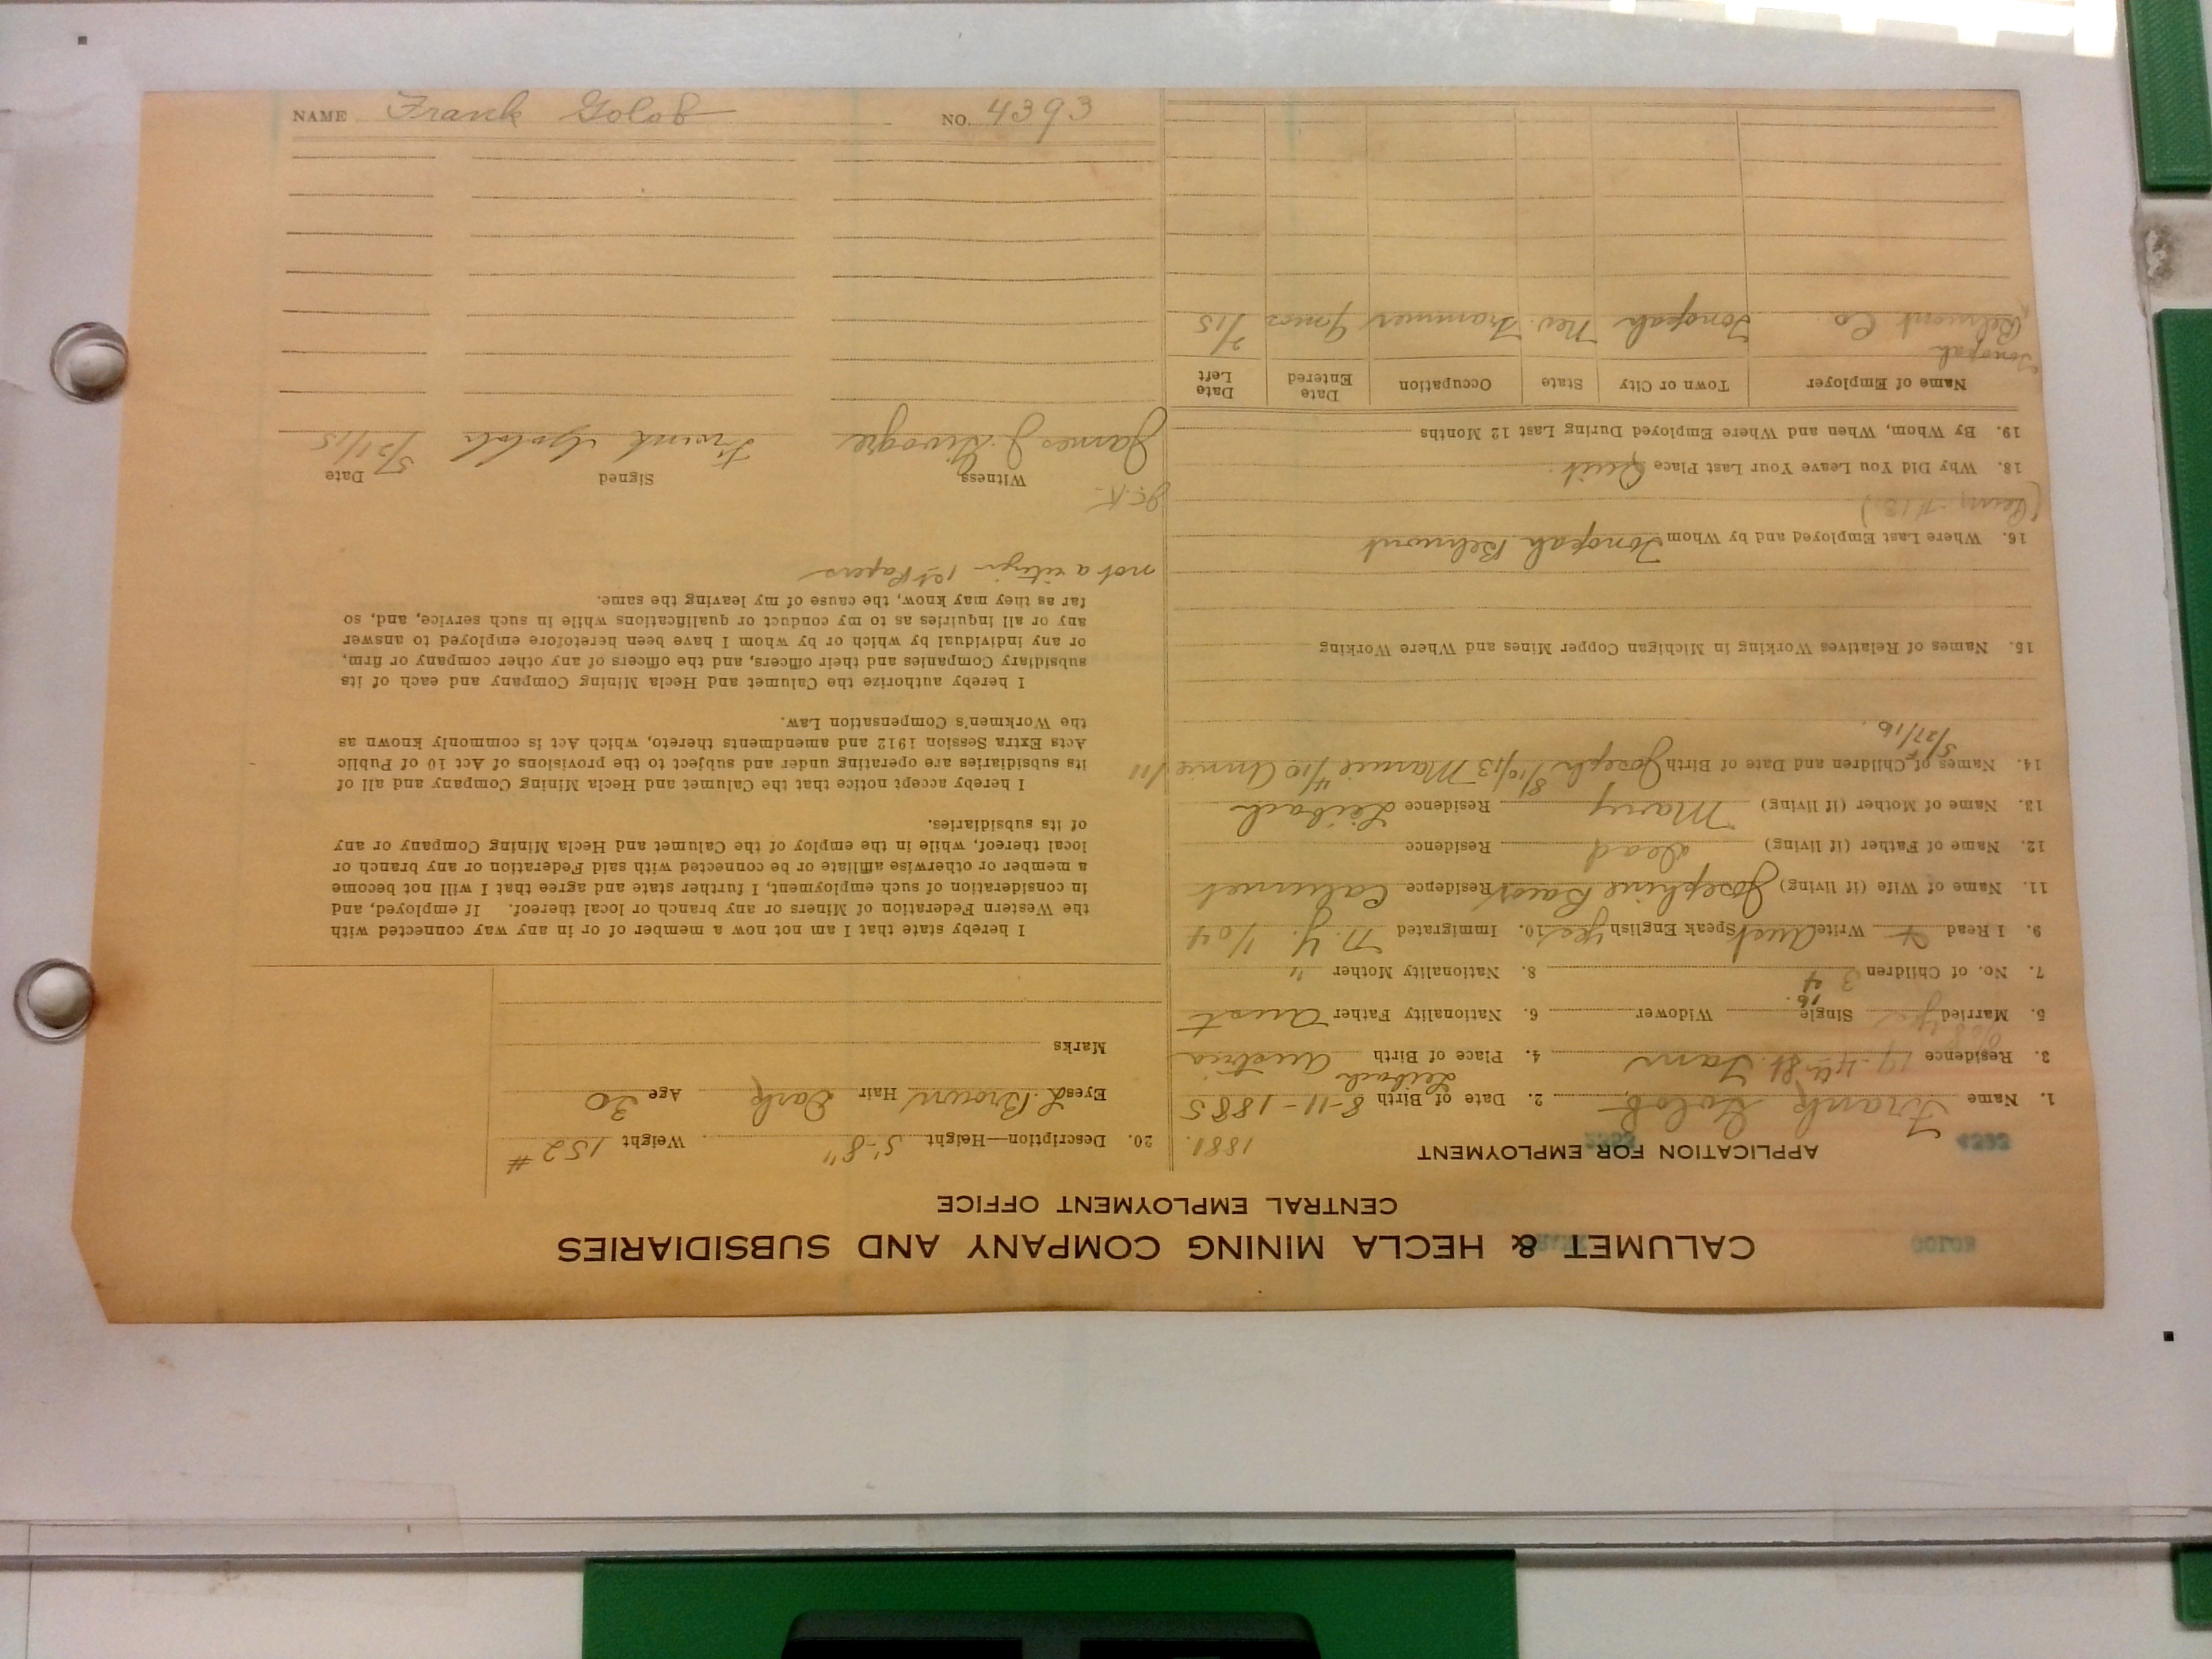 CALUMET & HECLA MINING COMPANY AND SUBSIDIARIES
GOLOB
CENTRAL EMPLOYMENT OFFICE
4393
APPLICATION FOR EMPLOYMENT
1881.
1. Name Frank Golob 2. Date of Birth 8-11-1885
3. Residence 4th St. 4. Place of Birth Leibach Austria
5. Married yes Single Widower 6. Nationality Father Aust
7. No. of Children 3 4 8. Nationality Mother "
9. I Read + Write Aust Speak English yes 10. Immigrated N. Y. 1/04
11. Name of Wife (if living) Josephine Residence Calumet
12. Name of Father (if living) dead Residence
13. Name of Mother (if living) Mary Residence Leibach
14. Names of Children and Date of Birth Joseph 8/10/13 Mamie 4/10 Annie /11
5/27/16
15. Names of Relatives Working in Michigan Copper Mines and Where Working
16. Where Last Employed and by Whom Tonopah Belmont
18. Why Did You Leave Your Last Place Quit
19. By Whom, When and Where Employed During Last 12 Months
Name of Employer Town or City State Occupation Date Entered Date Left
Tonopah Belmont Co. Tonopah Nev. Trammer 9 mos 2/15
20. Description—Height 5'-8" Weight 152 #
Eyes L. Brown Hair Dark Age 30
Marks
I hereby state that I am not now a member of or in any way connected with
the Western Federation of Miners or any branch or local thereof. If employed, and
in consideration of such employment, I further state and agree that I will not become
a member or otherwise affiliate or be connected with said Federation or any branch or
local thereof, while in the employ of the Calumet and Hecla Mining Company or any
of its subsidiaries.
I hereby accept notice that the Calumet and Hecla Mining Company and all of
its subsidiaries are operating under and subject to the provisions of Act 10 of Public
Acts Extra Session 1912 and amendments thereto, which Act is commonly known as
the Workmen's Compensation Law.
I hereby authorize the Calumet and Hecla Mining Company and each of its
subsidiary Companies and their officers, and the officers of any other company or firm,
or any individual by which or by whom I have been heretofore employed to answer
any or all inquiries as to my conduct or qualifications while in such service, and, so
far as they may know, the cause of my leaving the same.
not a citizen 1st Papers
Witness Signed Date
James J. Frank Golob 5/21/15
NAME Frank Golob NO. 4393